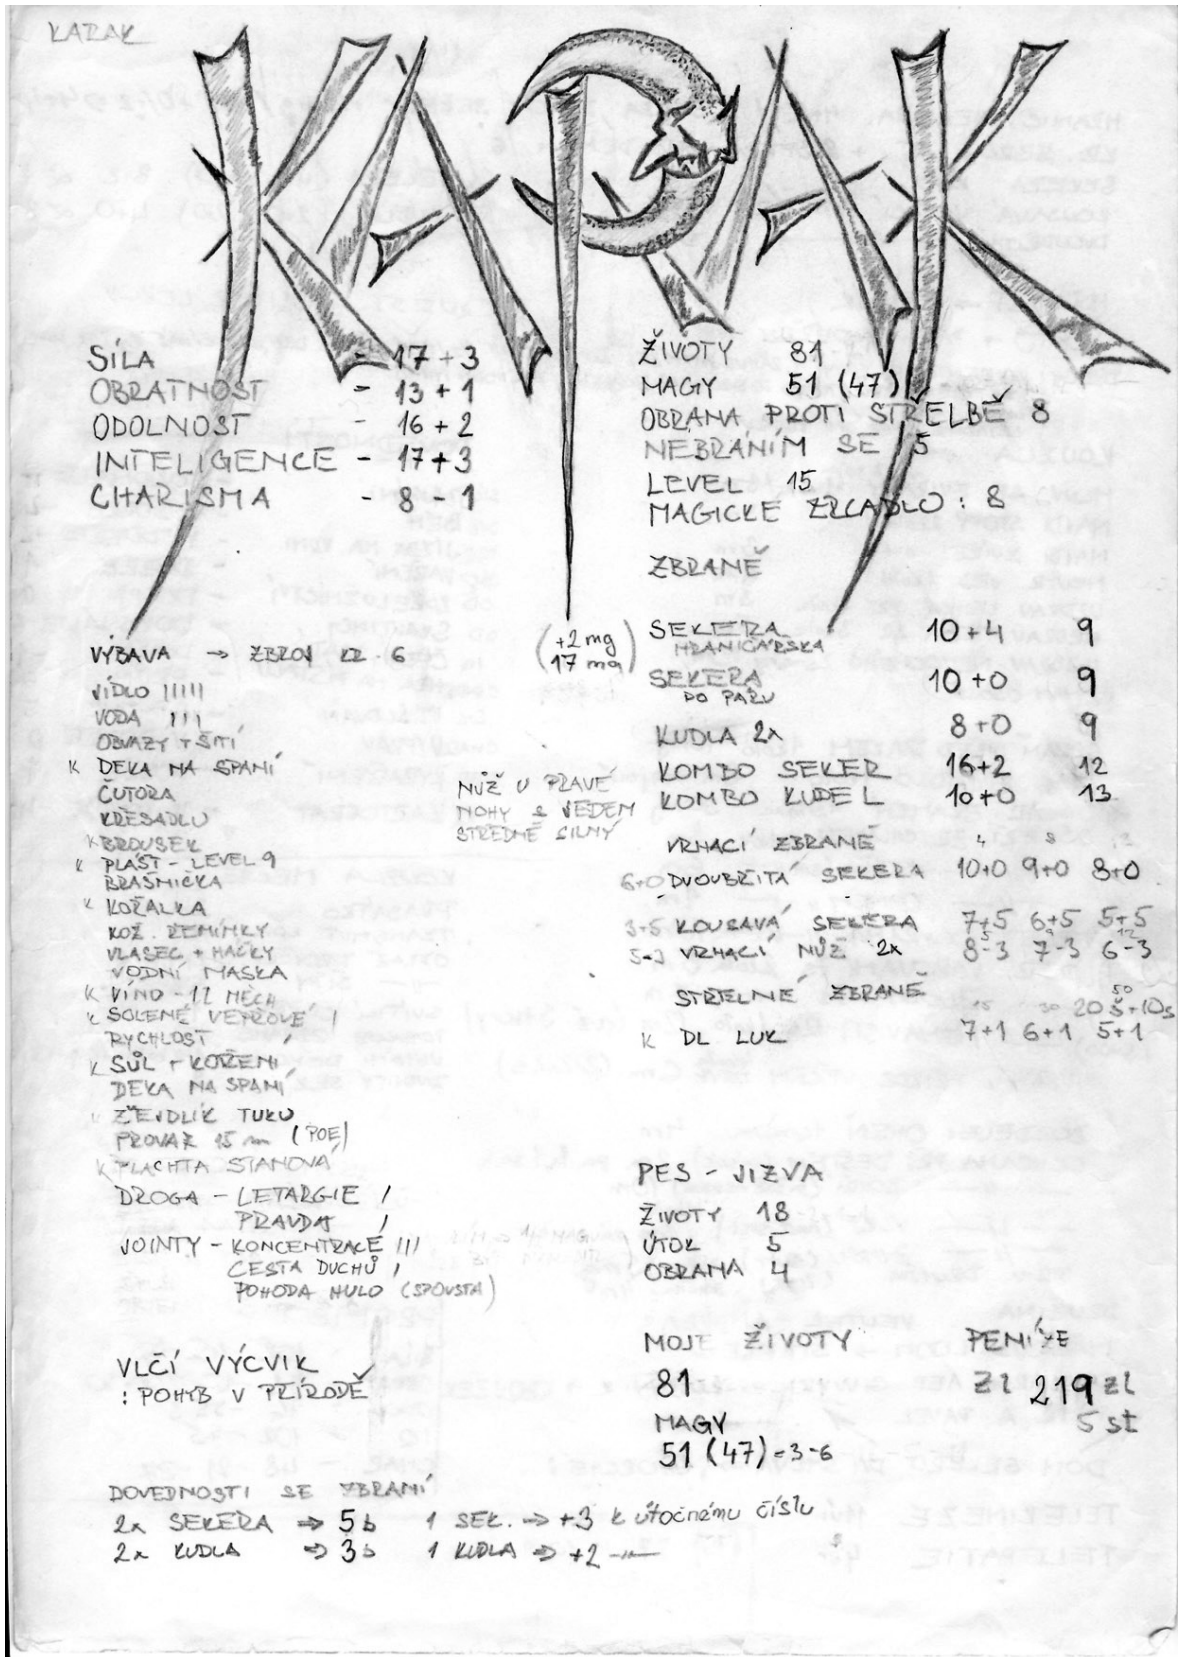 KARAK
KARAK
SÍLA - 17+3
OBRATNOST - 13+1
ODOLNOST - 16+2
INTELIGENCE - 17+3
CHARISMA - 8-1
ŽIVOTY 81
MAGY 51 (47)
OBRANA PROTI STŘELBĚ 8
NEBRÁNÍM SE 5
LEVEL 15
MAGICKÉ ZRCADLO : 8
ZBRANĚ
(+2 mg
17 mg)
SEKERA HRANIČÁŘSKÁ 10+4 9
SEKERA DO PÁRU 10+0 9
KUDLA 2x 8+0 9
KOMBO SEKER 16+2 12
KOMBO KUDEL 10+0 13
NŮŽ U PRAVÉ
NOHY S JEDEM
STŘEDNĚ SILNÝ
VRHACÍ ZBRANĚ 4 8 12
6+0 DVOUBŘITÁ SEKERA 10+0 9+0 8+0
3+5 KOUSAVÁ SEKERA 7+5 6+5 5+5
5-3 VRHACÍ NŮŽ 2x 8-3 7-3 6-3
STŘELNÉ ZBRANĚ
50
20 Š+10s
K DL LUK 7+1 6+1 5+1
VÝBAVA → ZBROJ KZ. 6
JÍDLO |||||
VODA |||
OBVAZY + ŠITÍ
K DEKA NA SPANÍ
ČUTORA
KŘESADLO
K BROUSEK
K PLÁŠŤ - LEVEL 9
BRAŠNIČKA
K KOŘALKA
KOŽ. ŘEMÍNKY
VLASEC + HÁČKY
VODNÍ MASKA
K VÍNO - 1L MĚCH
K SOLENÉ VEPŘOVÉ |
RYCHLOST |
K SŮL + KOŘENÍ
DEKA NA SPANÍ
K ŽEJDLÍK TUKU
PROVAZ 15 m (POE)
K PLACHTA STANOVÁ
DROGA - LETARGIE |
PRAVDA |
JOINTY - KONCENTRACE |||
CESTA DUCHŮ |
POHODA HULO (SPOUSTA)
PES - JIZVA
ŽIVOTY 18
ÚTOK 5
OBRANA 4
VLČÍ VÝCVIK
: POHYB V PŘÍRODĚ
MOJE ŽIVOTY
81
MAGY
51 (47) = 3-6
PENÍZE
Zl 219 zl
5 st
DOVEDNOSTI SE ZBRANÍ
2x SEKERA ⇒ 5b 1 SEK. → +3 k útočnému číslu
2x KUDLA ⇒ 3b 1 KUDLA ⇒ +2 —"—